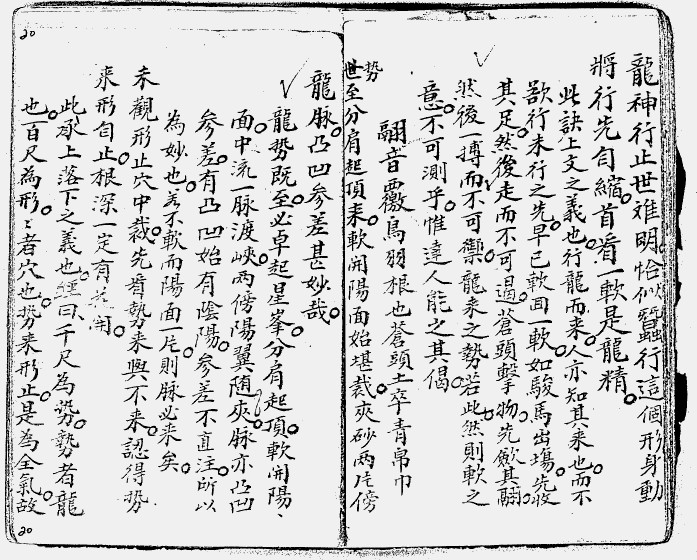 龍神行止世难明恰似蚕行這個形身動
將行先匂縮首看一軟是龍精
此訣上文之義也行龍而来人亦知其来也而不
欲行未行之先早已軟囬一軟如駿馬出場先收
其足然後走而不可遏蒼頭擊物先歛其翮
然後一摶而不可禦龍来之勢若此然則軟之
意不可測乎惟達人能之其偈
翮音覈鳥羽根也蒼頭士卒青帛巾
勢至分肩起頂来軟開陽面始堪裁夾砂兩片傍
龍脉凸凹参差甚妙哉
龍勢既至必卓起星峯分肩起頂軟開陽
面中流一脉渡峽兩傍陽翼随夾脉亦凸凹
参差有凸凹始有陰陽参差不直注所以
為妙也若不軟而陽面一片則脉必来矣
未觀形止穴中裁先看勢来與不来認得势
来形匂止根深一定有花開
此承上落下之義也經曰千尺為势勢者龍
也百尺為形形者穴也势来形止是為全氣故
20
20